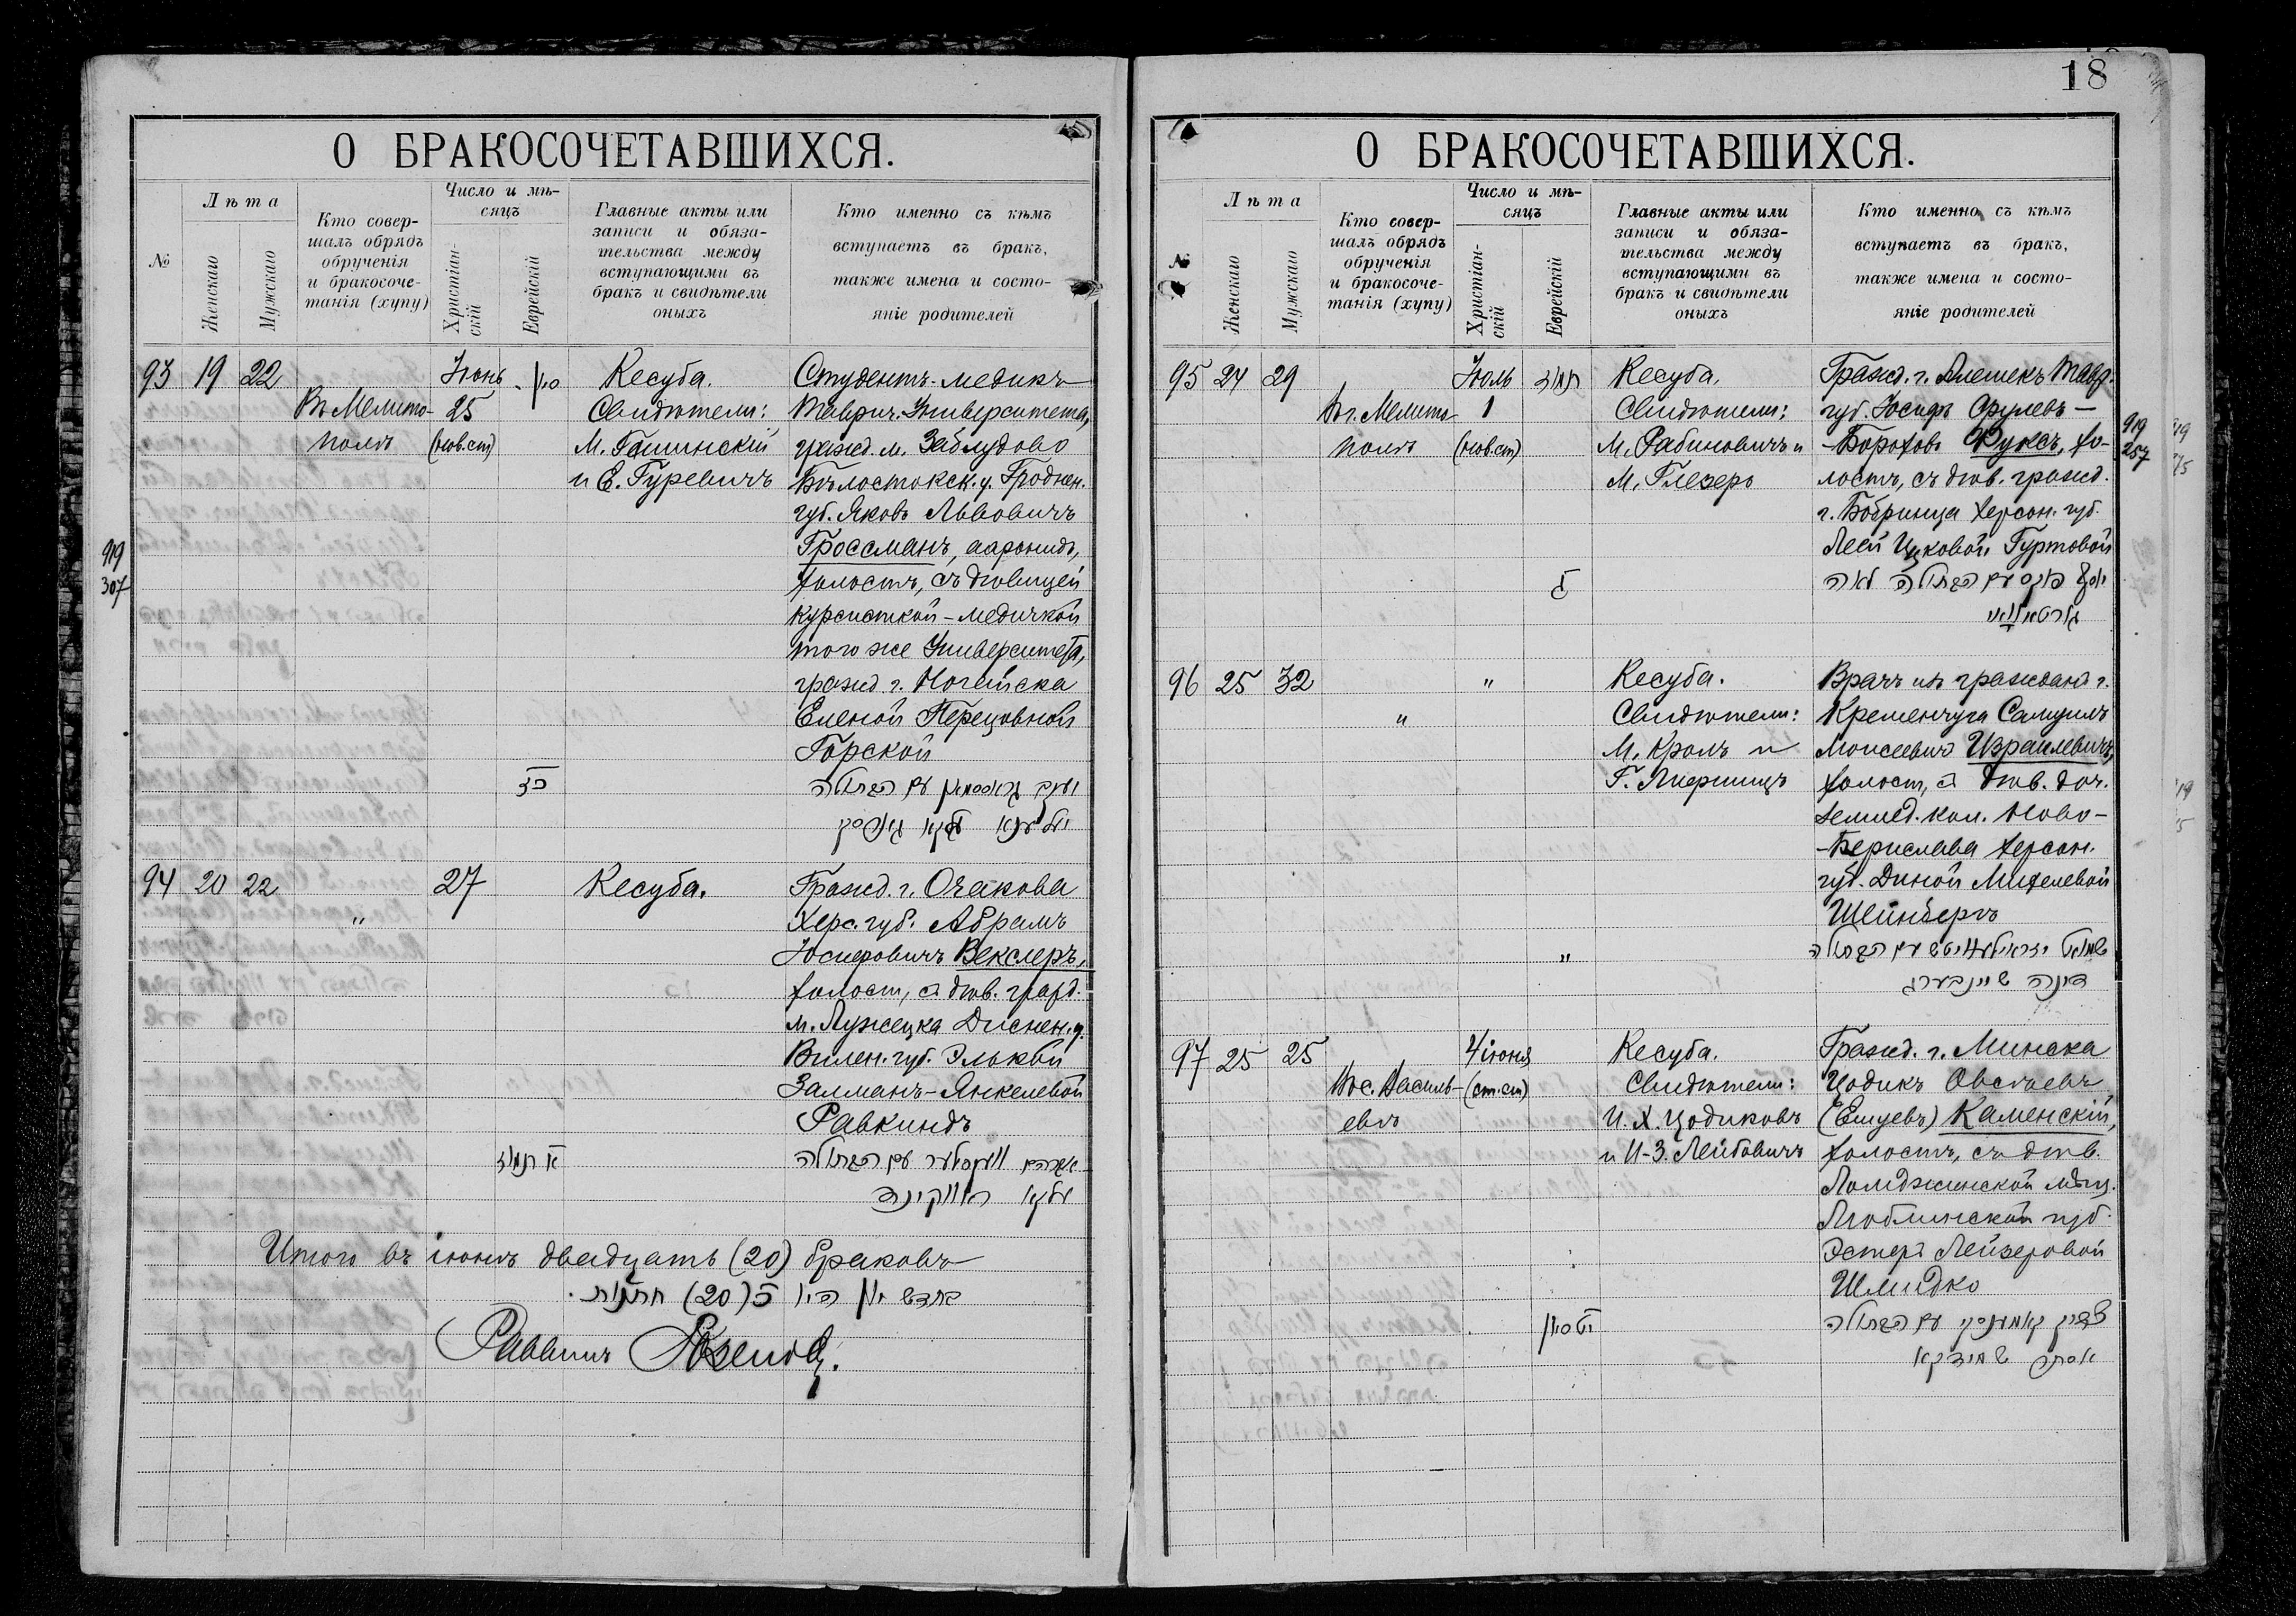 О БРАКОСОЧЕТАВШИХСЯ.
№
Лѣта
Женскаго
Мужскаго
Кто совер-
шалъ обрядъ
обрученія
и бракосоче-
танія (хупу)
Число и мѣ-
сяцъ
Христіан-
скій
Еврейскій
Главные акты или
записи и обяза-
тельства между
вступающими въ
бракъ и свидѣтели
оныхъ
Кто именно съ кѣмъ
вступаетъ въ бракъ,
также имена и состо-
яніе родителей
93 19 22
Въ Мелито-
полѣ
Іюнь
25
(нов.ст)
סיון
כז
Кесуба.
Свидѣтели:
и Е. Гуревичъ
Студентъ-медикъ
Таврич. Университета,
гражд. м. Заблудово
Бѣлостокск. у. Гроднен.
губ. Яковъ Львовичъ
Гроссманъ, ааронидъ,
холостъ, съ дѣвицей
курсисткой-медичкой
того же Университета,
гражд г. Ногайска
Еленой Перецовной
Горской
יעקב גראססמאן עם הבתולה
919
307
94 20 22
"
27
א תמוז
Кесуба.
Гражд. г. Очакова
Херс. губ. Абрамъ
Іосифовичъ Векслеръ,
холост, съ дѣв. гражд.
м. Лужецка Диснен. у.
Вилен. губ. Элькой
Залманъ-Янкелевой
Равкиндъ
אברהם וועקסלער עם הבתולה
עלקא ראווקינד
Итого въ іюнѣ двадцать (20) браковъ
בחדש יון היו כ (20) חתנות.
Раввинъ
18
О БРАКОСОЧЕТАВШИХСЯ.
№
Лѣта
Женскаго
Мужскаго
Кто совер-
шалъ обрядъ
обрученія
и бракосоче-
танія (хупу)
Число и мѣ-
сяцъ
Христіан-
скій
Еврейскій
Главные акты или
записи и обяза-
тельства между
вступающими въ
бракъ и свидѣтели
оныхъ
Кто именно съ кѣмъ
вступаетъ въ бракъ,
также имена и состо-
яніе родителей
95 24 29
Въ г. Мелито-
полѣ
Іюль
1
(нов.ст)
תמוז
ג
Кесуба.
Свидѣтели:
М. Рабиновичъ и
М. Глезеръ
Гражд. г. Алешекъ Тавр.
губ. Іосифъ Срулевъ-
-Бороховъ Фуксъ, хо-
лостъ, съ дѣв. гражд.
г. Бобринца Херсон. губ.
Леей Ицковой Гуртовой
יוסף פוקס עם הבתולה לאה
919
257
96 25 32
"
"
"
Кесуба.
Свидѣтели:
М. Кроль и
Врачъ изъ гражданъ г.
Кременчуга Самуилъ
Моисеевичъ Израилевичъ,
холост, съ дѣв. доч.
землед. кол. Ново-
-Берислава Херсон.
губ. Диной Михелевой
Шейнбергъ
שמואל יזראילעוויטש עם הבתולה
דינה שיינבערג
97 25 25
Въ с. Василь-
евкѣ
4 іюня
(ст.ст)
יט סיון
Кесуба.
Свидѣтели:
И. Х. Цодиковъ
и И-З. Лейбовичъ
Гражд. г. Минска
Цодикъ Овсѣевъ
(Еишуевъ) Каменскій,
холостъ, съ дѣв.
Ломджинской мѣщ.
Люблинской губ.
Эстеръ Лейзеровой
Шмидко
צדיק קאמענסקי עם הבתולה
אסתר שמידקא